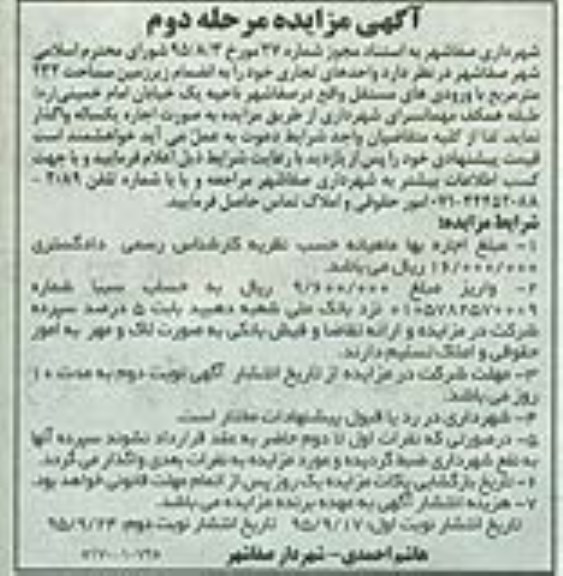 آگهی مزایده مرحله دوم
شهرداری صفاشهر به استناد مجوز شماره ۳۷ مورخ ۹۵/۸/۳ شورای محترم اسلامی
شهر صفاشهر در نظر دارد واحدهای تجاری خود را به انضمام زیرزمین مساحت ۲۳۲
مترمربع با ورودی های مستقل واقع در صفاشهر ناحیه یک خیابان امام خمینی(ره)
طبقه همکف مهمانسرای شهرداری از طریق مزایده به صورت اجاره یکساله واگذار
نماید. لذا از کلیه متقاضیان واجد شرایط دعوت به عمل می آید خواهشمند است
قیمت پیشنهادی خود را پس از بازدید با رعایت شرایط ذیل اعلام فرمایید و یا جهت
کسب اطلاعات بیشتر به شهرداری صفاشهر مراجعه و یا با شماره تلفن
امور حقوقی و املاک تماس حاصل فرمایید.
شرایط مزایده:
۱- مبلغ اجاره بها ماهیانه حسب نظریه کارشناس رسمی دادگستری
۱۶/۰۰۰/۰۰۰ ریال می باشد.
۲- واریز مبلغ ۹/۶۰۰/۰۰۰ ریال به حساب سیبا شماره
نزد بانک ملی شعبه دهبید بابت ۵ درصد سپرده
شرکت در مزایده و ارائه تقاضا و فیش بانکی به صورت لاک و مهر به امور
حقوقی و املاک تسلیم دارند.
۳- مهلت شرکت در مزایده از تاریخ انتشار آگهی نوبت دوم به مدت ۱۰
روز می باشد.
۴- شهرداری در رد یا قبول پیشنهادات مختار است.
۵- در صورتی که نفرات اول تا دوم حاضر به عقد قرارداد نشوند سپرده آنها
به نفع شهرداری ضبط گردیده و مورد مزایده به نفرات بعدی واگذار می گردد.
۶- تاریخ بازگشایی پاکات مزایده یک روز پس از اتمام مهلت قانونی خواهد بود.
۷- هزینه انتشار آگهی به عهده برنده مزایده می باشد.
تاریخ انتشار نوبت اول: ۹۵/۹/۱۷ تاریخ انتشار نوبت دوم: ۹۵/۹/۲۴
هاشم احمدی - شهردار صفاشهر